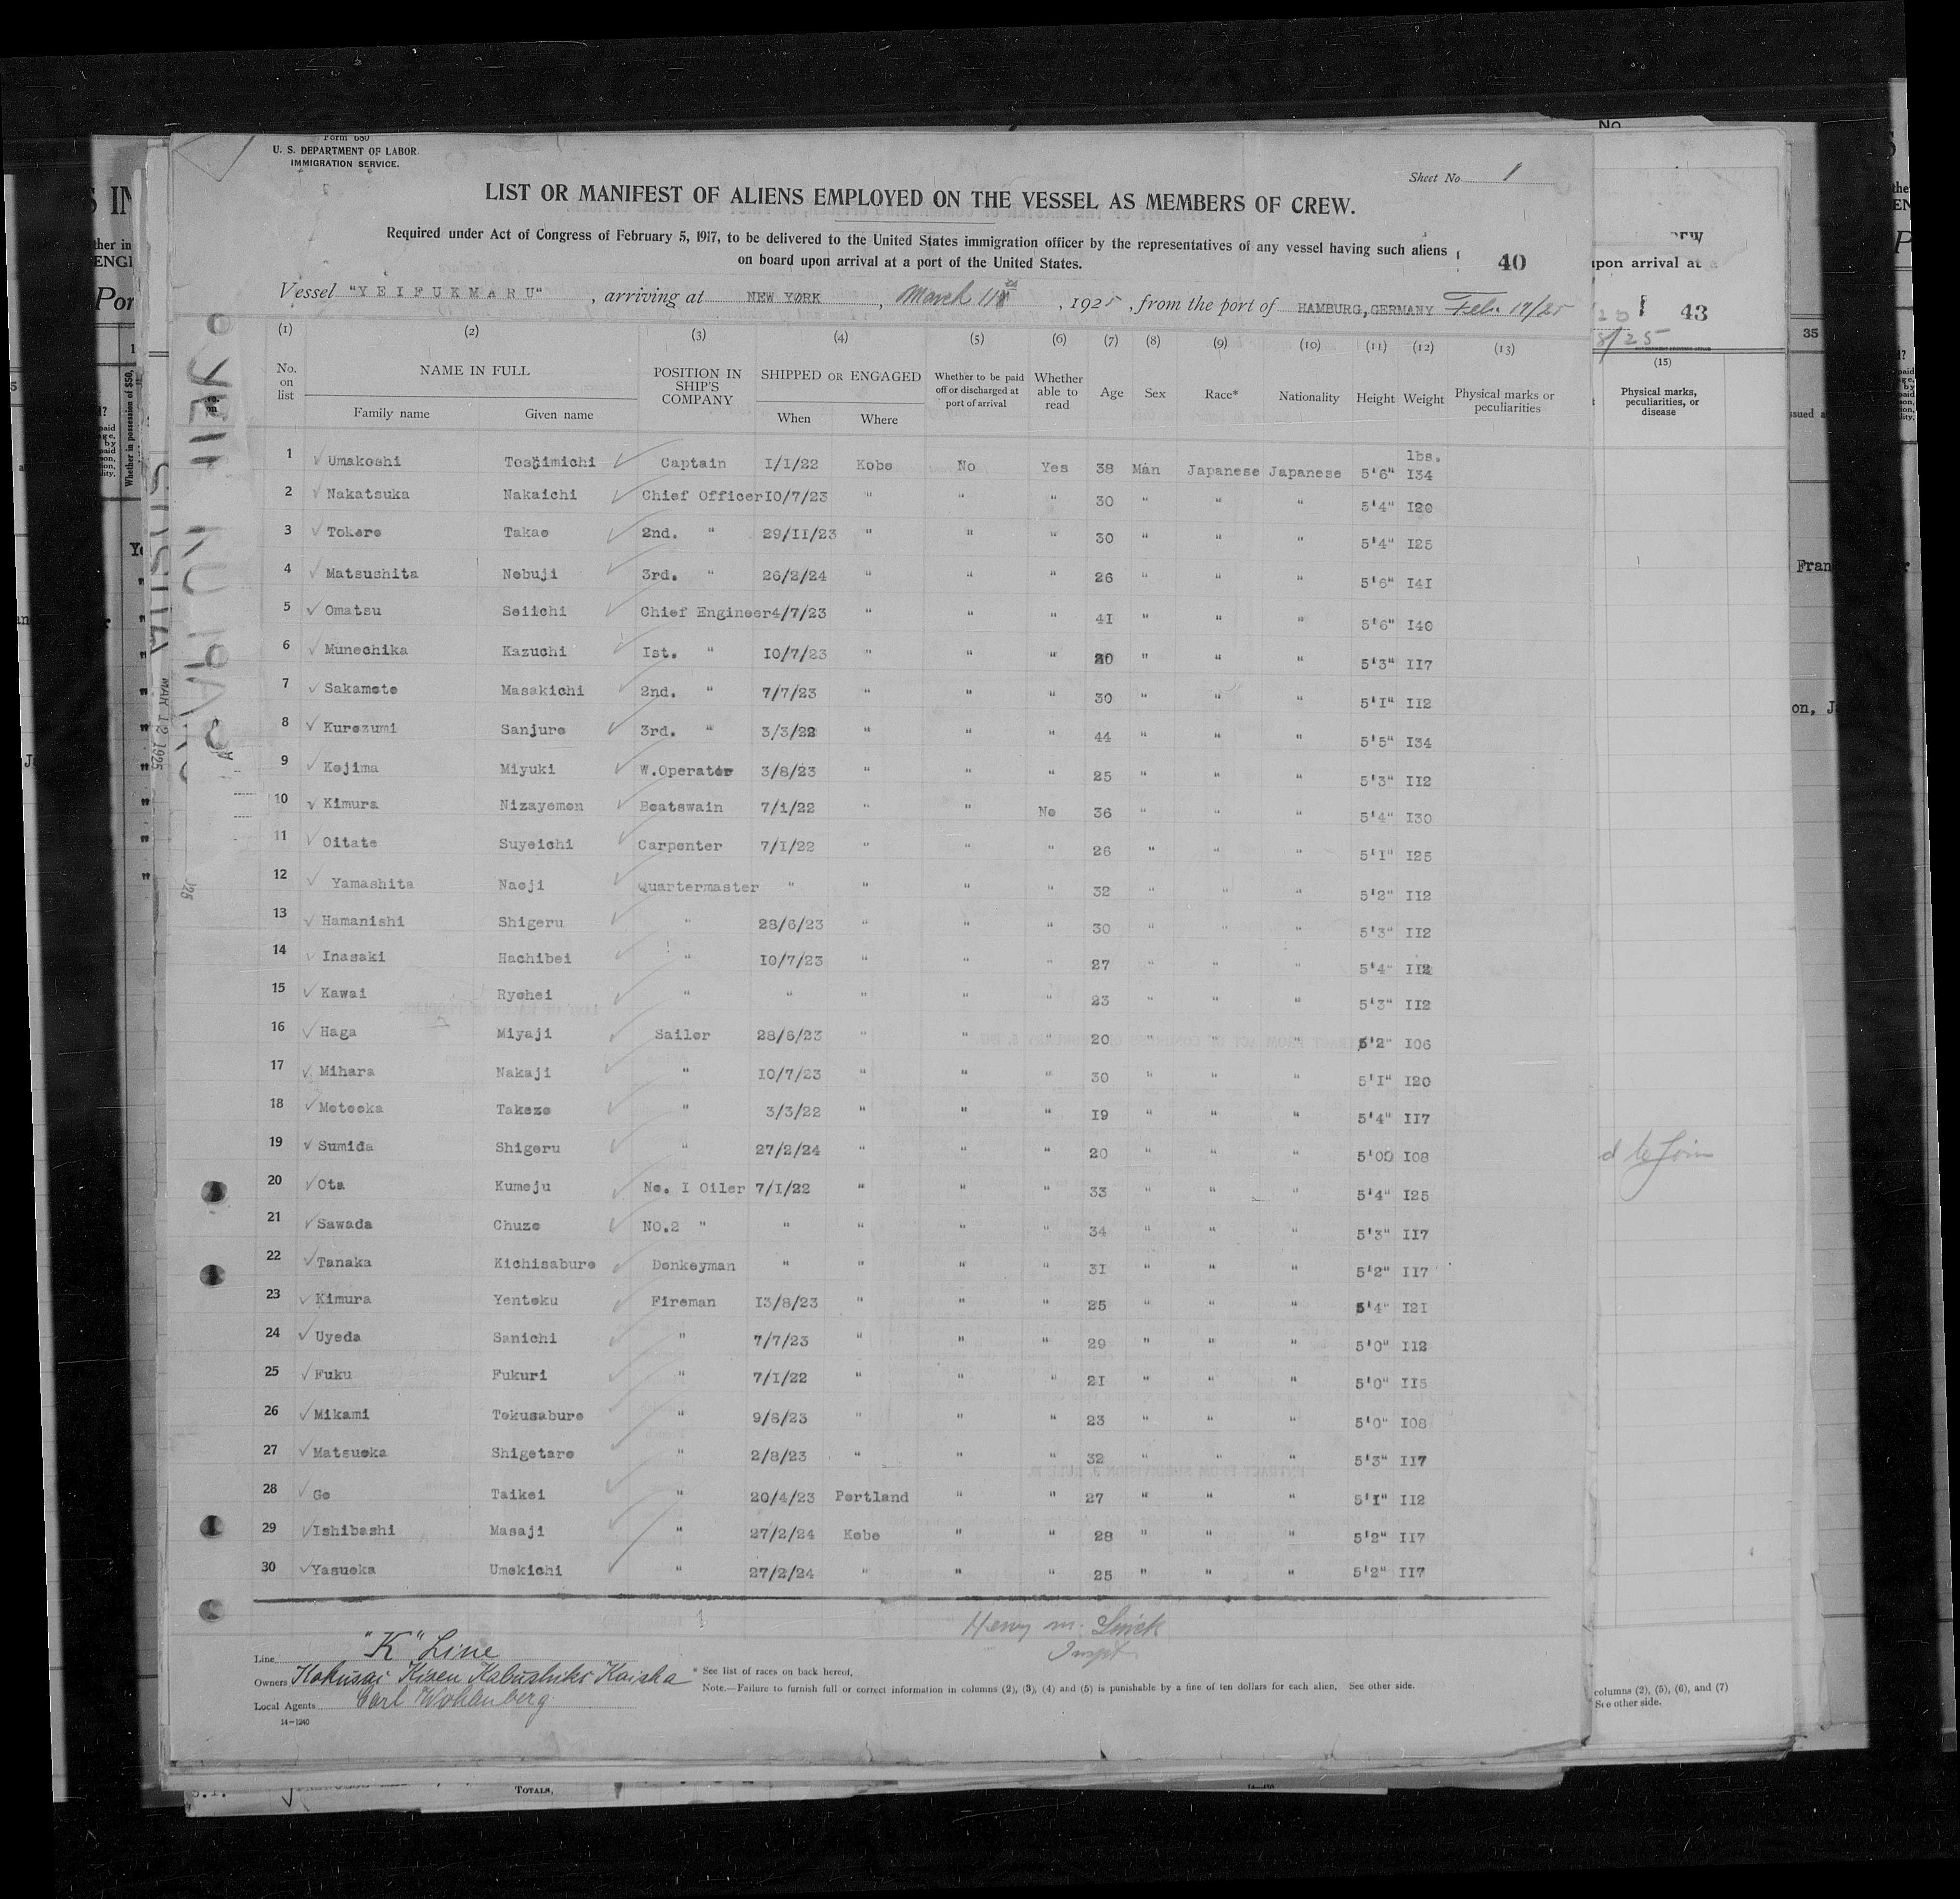 Form 680
U. S. DEPARTMENT OF LABOR
IMMIGRATION SERVICE.
Sheet No. 1
LIST OR MANIFEST OF ALIENS EMPLOYED ON THE VESSEL AS MEMBERS OF CREW.
Required under Act of Congress of February 5, 1917, to be delivered to the United States immigration officer by the representatives of any vessel having such aliens
on board upon arrival at a port of the United States.
40
Vessel "YEIFUKMARU", arriving at NEW YORK, March 11, 1925, from the port of HAMBURG,GERMANY Feb. 17/25
(1) (2) (3) (4) (5) (6) (7) (8) (9) (10) (11) (12) (13)
No. on list NAME IN FULL POSITION IN SHIP'S COMPANY SHIPPED OR ENGAGED Whether to be paid off or discharged at port of arrival Whether able to read Age Sex Race* Nationality Height Weight Physical marks or peculiarities
Family name Given name When Where
lbs.
1 Umakoshi Toshimichi Captain I/I/22 Kobe No Yes 38 Man Japanese Japanese 5'6" I34
2 Nakatsuka Nakaichi Chief Officer I0/7/23 " " " 30 " " " 5'4" I20
3 Tokoro Takao 2nd. " 29/II/23 " " " 30 " " " 5'4" I25
4 Matsushita Nobuji 3rd. " 26/2/24 " " " 26 " " " 5'6" I4I
5 Omatsu Seiichi Chief Engineer 4/7/23 " " " 4I " " " 5'6" I40
6 Munechika Kazuchi Ist. " I0/7/23 " " " 30 " " " 5'3" II7
7 Sakamoto Masakichi 2nd. " 7/7/23 " " " 30 " " " 5'I" II2
8 Kurozumi Sanjuro 3rd. " 3/3/22 " " " 44 " " " 5'5" I34
9 Kojima Miyuki W.Operator 3/8/23 " " " 25 " " " 5'3" II2
10 Kimura Nizayemon Boatswain 7/1/22 " " No 36 " " " 5'4" I30
11 Oitate Suyeichi Carpenter 7/I/22 " " " 26 " " " 5'I" I25
12 Yamashita Naoji Quartermaster " " " " 32 " " " 5'2" II2
13 Hamanishi Shigeru " 28/6/23 " " " 30 " " " 5'3" II2
14 Inasaki Hachibei " I0/7/23 " " " 27 " " " 5'4" II2
15 Kawai Ryohei " " " " " 23 " " " 5'3" II2
16 Haga Miyaji Sailor 28/6/23 " " " 20 " " " 5'2" I06
17 Mihara Nakaji " I0/7/23 " " " 30 " " " 5'I" I20
18 Motooka Takezo " 3/3/22 " " " I9 " " " 5'4" II7
19 Sumida Shigeru " 27/2/24 " " " 20 " " " 5'00 I08
20 Ota Kumeju No. I Oiler 7/I/22 " " " 33 " " " 5'4" I25
21 Sawada Chuzo NO.2 " " " " " 34 " " " 5'3" II7
22 Tanaka Kichisaburo Donkeyman " " " " 3I " " " 5'2" II7
23 Kimura Yentoku Fireman I3/8/23 " " " 25 " " " 5'4" I2I
24 Uyeda Sanichi " 7/7/23 " " " 29 " " " 5'0" II2
25 Fuku Fukuri " 7/I/22 " " " 2I " " " 5'0" II5
26 Mikami Tokusaburo " 9/8/23 " " " 23 " " " 5'0" I08
27 Matsuoka Shigetaro " 2/8/23 " " " 32 " " " 5'3" II7
28 Go Taikei " 20/4/23 Portland " " 27 " " " 5'I" II2
29 Ishibashi Masaji " 27/2/24 Kobe " " 28 " " " 5'2" II7
30 Yasuoka Umekichi " 27/2/24 " " " 25 " " " 5'2" II7
Henry M.
Inspt.
Line "K" Line
Owners Kokusai Kisen Kabushiki Kaisha
Local Agents Carl Wohlenberg
14-1240
* See list of races on back hereof.
Note.—Failure to furnish full or correct information in columns (2), (3), (4) and (5) is punishable by a fine of ten dollars for each alien. See other side.
YEIFUKU MARU
MAR 12 1925
No.
upon arrival at
43
(15)
Physical marks, peculiarities, or disease
columns (2), (5), (6), and (7)
See other side.
35
TOTALS,